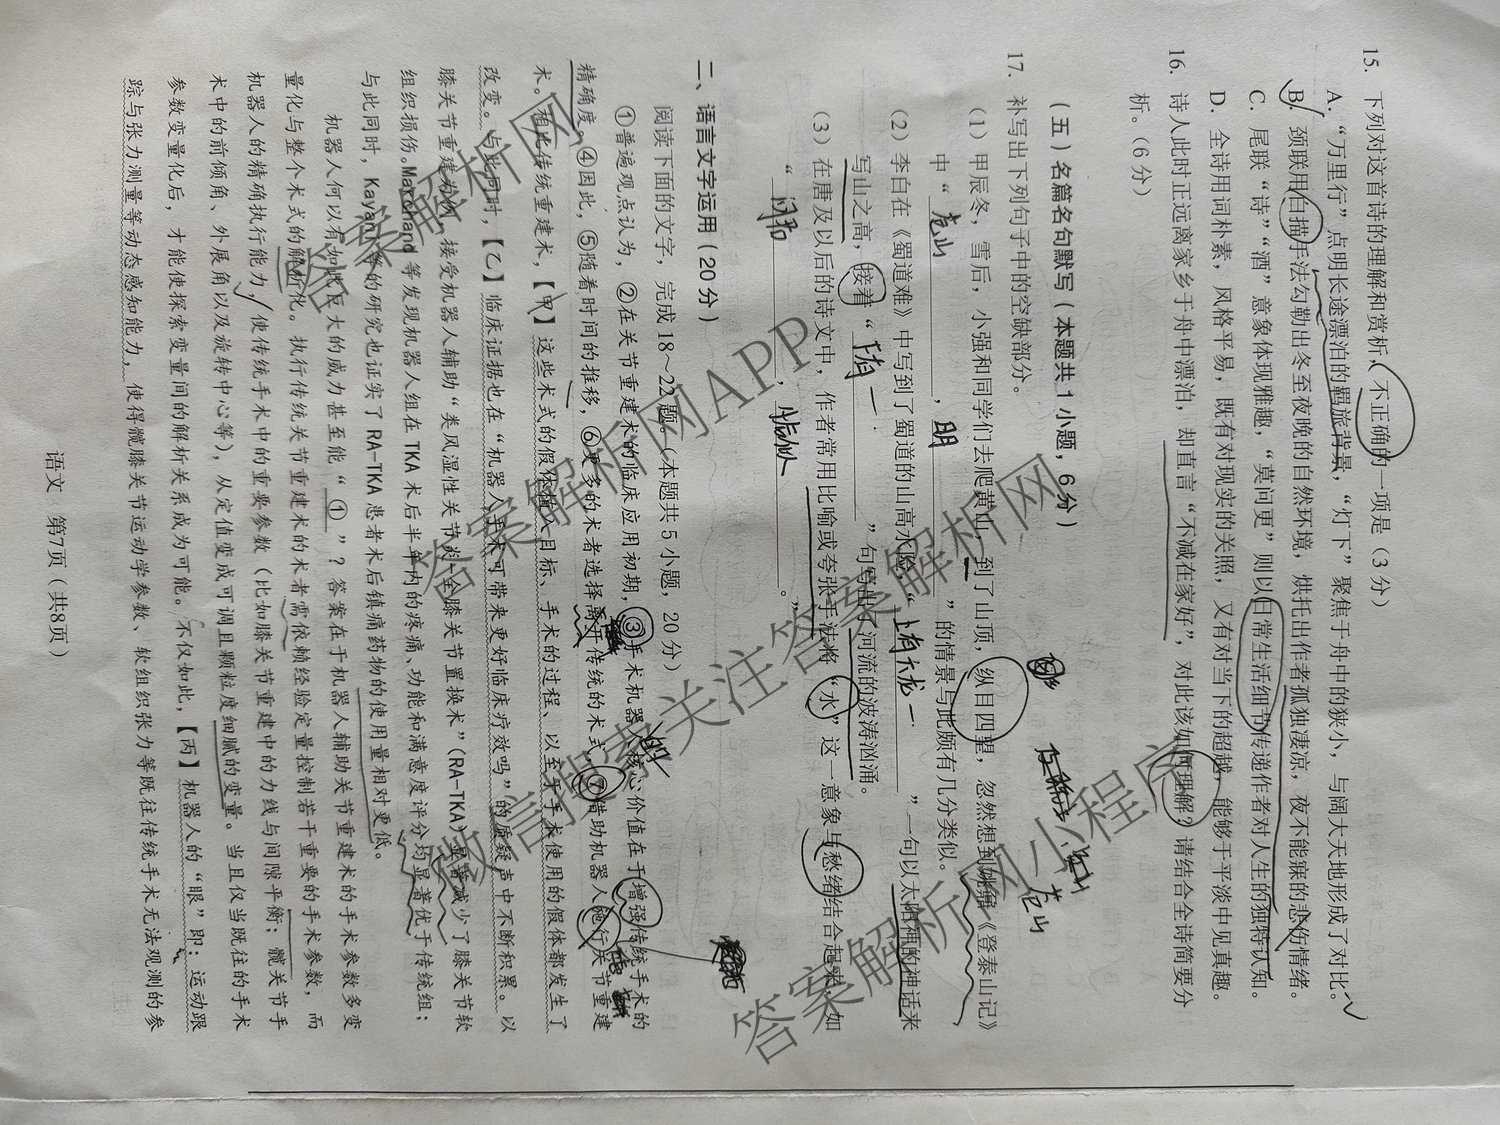 15. 下列对这首诗的理解和赏析，不正确的一项是（3分）
A.“万里行”点明长途漂泊的羁旅背景，“灯下”聚焦于舟中的狭小，与阔大天地形成了对比。
B. 颈联用白描手法勾勒出冬至夜晚的自然环境，烘托出作者孤独凄凉，夜不能寐的悲伤情绪。
C. 尾联“诗”“酒”意象体现雅趣，“莫问更”则以日常生活细节传递作者对人生的独特认知。
D. 全诗用词朴素，风格平易，既有对现实的关照，又有对当下的超越，能够于平淡中见真趣。
16. 诗人此时正远离家乡于舟中漂泊，却直言“不减在家好”，对此该如何理解？请结合全诗简要分
析。（6分）
（五）名篇名句默写（本题共1小题，6分）
17. 补写出下列句子中的空缺部分。
（1）甲辰冬，雪后，小强和同学们去爬黄山，到了山顶，纵目四望，忽然想到姚鼐《登泰山记》
中“苍山 ，明 ”的情景与此颇有几分类似。
（2）李白在《蜀道难》中写到了蜀道的山高水险，“上有六龙一 ”一句以太阳神的神话来
写山之高，接着“下有一 ”句写出了河流的波涛汹涌。
（3）在唐及以后的诗文中，作者常用比喻或夸张手法将“水”这一意象与愁绪结合起来，如
“问君 ，恰似 。”
二、语言文字运用（20分）
阅读下面的文字，完成18～22题。（本题共5小题，20分）
①普遍观点认为，②在关节重建术的临床应用初期，③手术机器人核心价值在于增强传统手术的
精确度。④因此，⑤随着时间的推移，⑥更多的术者选择离开传统的术式，⑦借助机器人施行关节重建
术。相比传统重建术，【甲】这些术式的假体植入目标、手术的过程、以至于手术使用的假体都发生了
改变。与此同时，【乙】临床证据也在“机器人手术可带来更好临床疗效吗”的质疑声中不断积累。以
膝关节重建为例，接受机器人辅助“类风湿性关节炎-全膝关节置换术”（RA-TKA）显著减少了膝关节软
组织损伤。Marchand 等发现机器人组在 TKA 术后半年内的疼痛、功能和满意度评分均显著优于传统组；
与此同时，Kayani 等的研究也证实了 RA-TKA 患者术后镇痛药物的使用量相对更低。
机器人何以有如此巨大的威力甚至能“ ① ”？答案在于机器人辅助关节重建术的手术参数多变
量化与整个术式的解析化。执行传统关节重建术的术者需依赖经验定量控制若干重要的手术参数，而
机器人的精确执行能力，使传统手术中的重要参数（比如膝关节重建中的力线与间隙平衡；髋关节手
术中的前倾角、外展角以及旋转中心等），从定值变成可调且颗粒度细腻的变量。当且仅当既往的手术
参数变量化后，才能使探索变量间的解析关系成为可能。不仅如此，【丙】机器人的“眼”即：运动跟
踪与张力测量等动态感知能力，使得髋膝关节运动学参数、软组织张力等既往传统手术无法观测的参
语文 第7页（共8页）
答案解析网
答案解析网APP
微信搜索关注答案解析网
答案解析网小程序